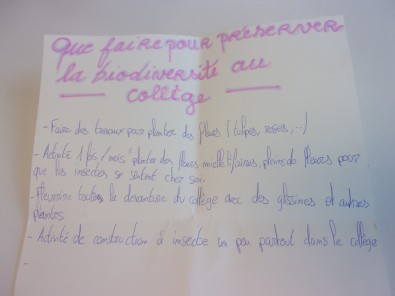 Que faire pour préserver
la biodiversité au
collège
- Faire des travaux pour planter des fleurs (tulipes, roses, ...)
- Activité 1 fois / mois planter des fleurs mellifères, pleins de fleurs pour
que les insectes se sentent chez soi.
- Fleurir toute la devanture du collège avec des glycines et autres
plantes
- Activité de construction à insecte un peu partout dans le collège
-